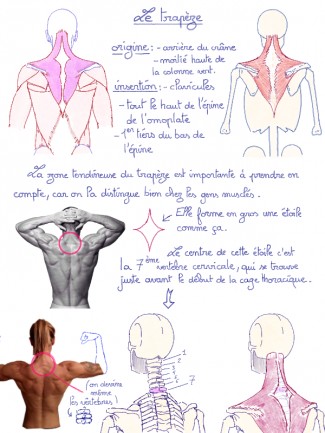 Le trapèze
origine : - arrière du crâne
- moitié haute de
la colonne vert.
insertion : - clavicules
- tout le haut de l'épine
de l'omoplate
- 1er tiers du bas de
l'épine
La zone tendineuse du trapèze est importante à prendre en
compte, car on la distingue bien chez les gens musclés.
Elle forme en gros une étoile
comme ça.
Le centre de cette étoile c'est
la 7ème vertèbre cervicale, qui se trouve
juste avant le début de la cage thoracique.
(on dessine
même
les vertèbres !
1
2
3
7